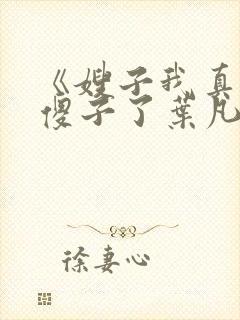 《嫂子我真
傻子了葉凡
徐妻心